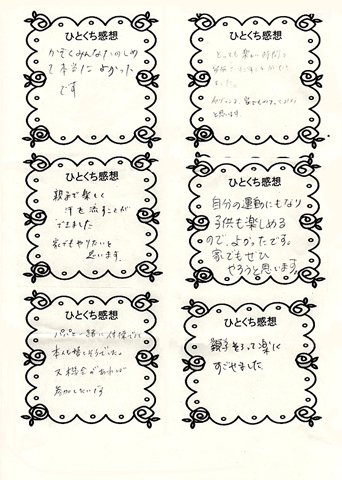 ひとくち感想
かぞくみんなたのしめ
て本当によかった
です
ひとくち感想
とっても楽しい時間を
ました。
と思います。
ひとくち感想
親子で楽しく
汗を流すことが
できました
家でもやりたいと
思います。
ひとくち感想
自分の運動にもなり
子供も楽しめる
ので、よかったです。
家でもぜひ
やろうと思います。
ひとくち感想
パパと一緒に体操でき
本人も嬉しそうでした。
又機会があれば
参加したいです
ひとくち感想
親子そろって楽に
すごせました